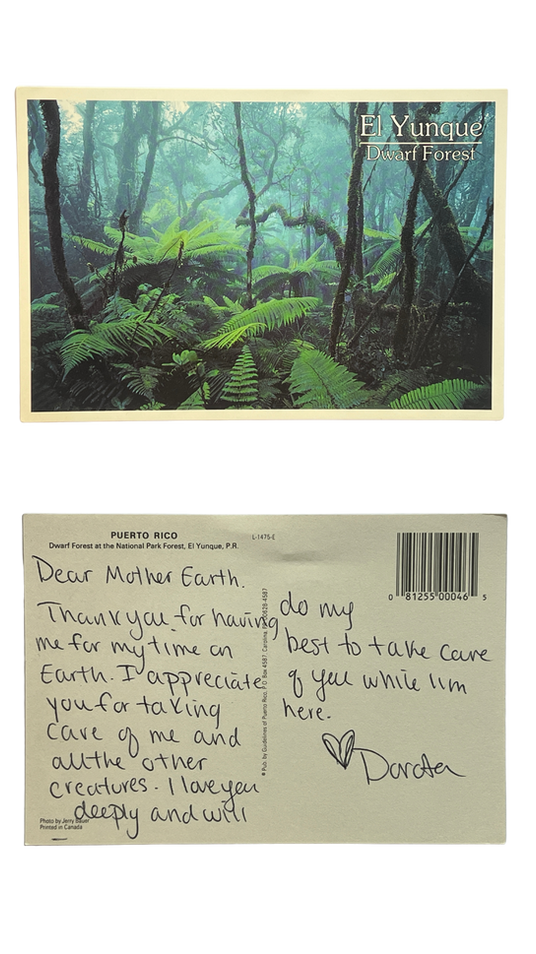 El Yunque
Dwarf Forest
PUERTO RICO
Dwarf Forest at the National Park Forest, El Yunque, P.R.
L-1475-E
0 81255 00046 5
Dear Mother Earth.
Thank you for having
me for my time on
Earth. I appreciate
you for taking
care of me and
all the other
creatures. I love you
deeply and will
do my
best to take care
of you while I'm
here.
Dorotea
Photo by Jerry Bauer
Printed in Canada
Pub. by Guidelines of Puerto Rico, P.O. Box 4587, Carolina, 00628-4587